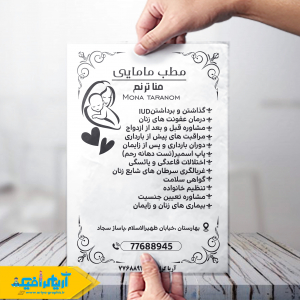 مطب مامایی
منا ترنم
MONA TARANOM
گذاشتن و برداشتن IUD
درمان عفونت های زنان
مشاوره قبل و بعد از ازدواج
مراقبت های پیش از بارداری
دوران بارداری و پس از زایمان
پاپ اسمیر(تست دهانه رحم)
اختلالات قاعدگی و یائسگی
غربالگری سرطان های شایع زنان
گواهی سلامت
تنظیم خانواده
مشاوره تعیین جنسیت
بیماری های زنان و زایمان
بهارستان ،خیابان ظهیرالاسلام ،پاساژ سجاد
77688945